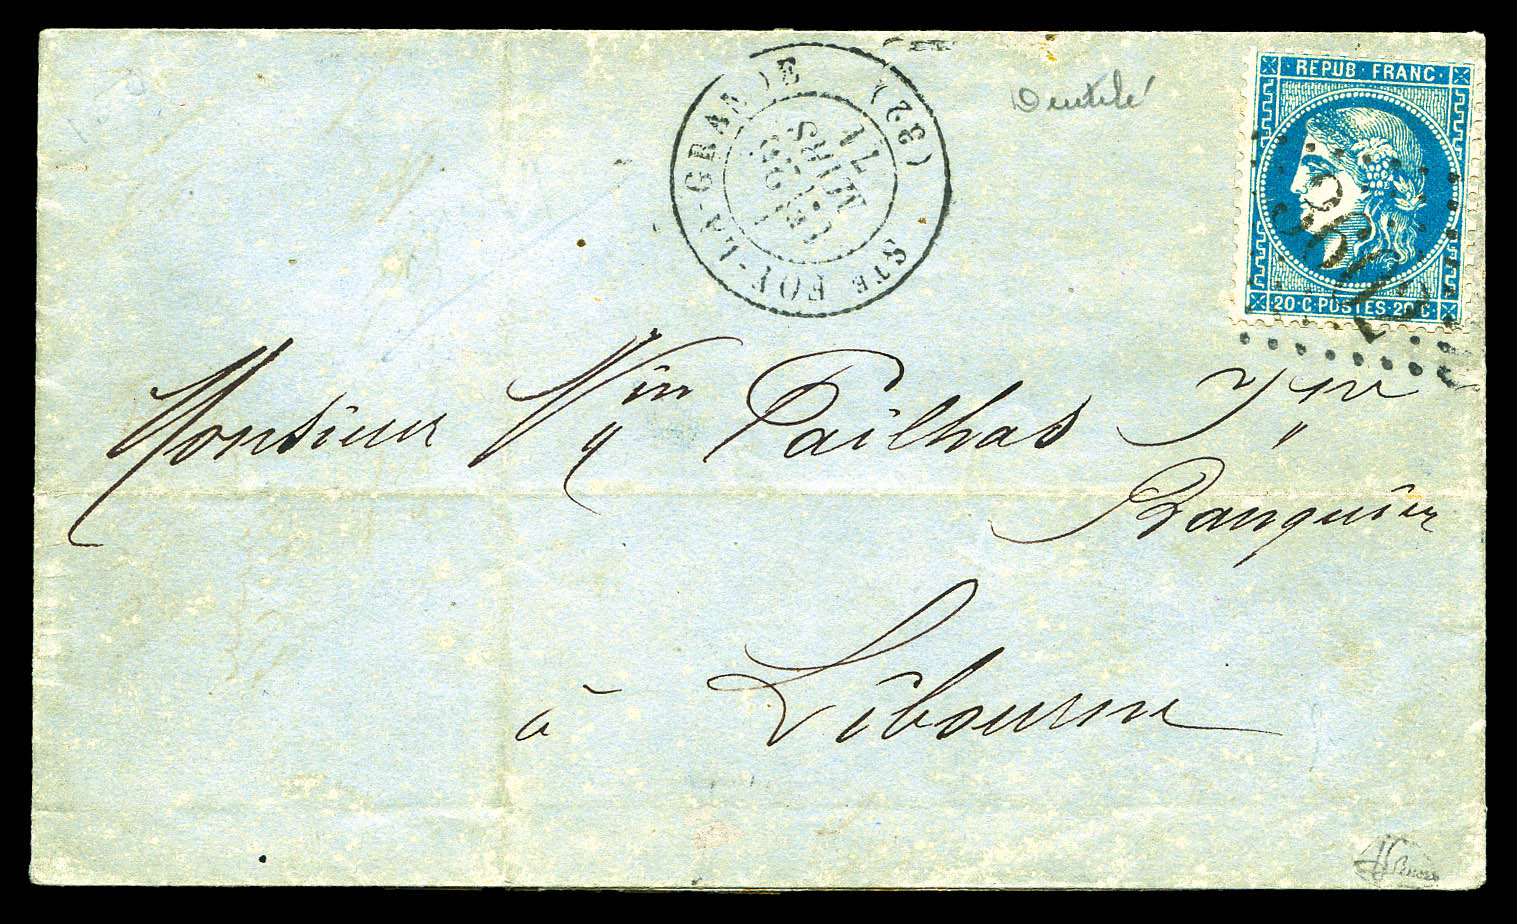 STE FOY-LA-GRANDE (32)
MARS
71
Dentelé
REPUB · FRANC ·
20 · C · POSTES · 20 · C ·
Monsieur Pailhas Jne
Banquier
à Libourne